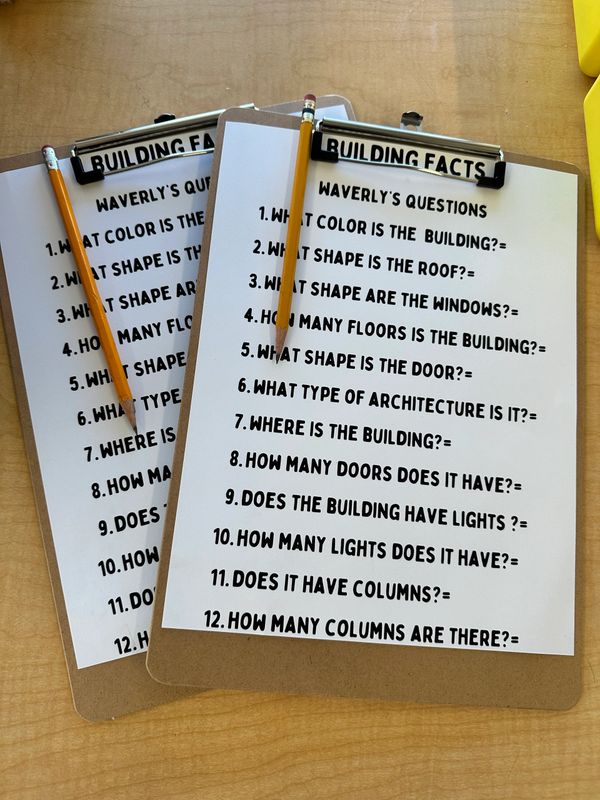 BUILDING FA
WAVERLY'S QUE
1. WHAT COLOR IS THE
2. WHAT SHAPE IS TH
3. WHAT SHAPE AR
4. HOW MANY FLO
5. WHAT SHAPE
6. WHAT TYPE
7. WHERE IS
8. HOW MA
9. DOES
10. HOW
11. DO
12. H
BUILDING FACTS
WAVERLY'S QUESTIONS
1. WHAT COLOR IS THE BUILDING?=
2. WHAT SHAPE IS THE ROOF?=
3. WHAT SHAPE ARE THE WINDOWS?=
4. HOW MANY FLOORS IS THE BUILDING?=
5. WHAT SHAPE IS THE DOOR?=
6. WHAT TYPE OF ARCHITECTURE IS IT?=
7. WHERE IS THE BUILDING?=
8. HOW MANY DOORS DOES IT HAVE?=
9. DOES THE BUILDING HAVE LIGHTS ?=
10. HOW MANY LIGHTS DOES IT HAVE?=
11. DOES IT HAVE COLUMNS?=
12. HOW MANY COLUMNS ARE THERE?=